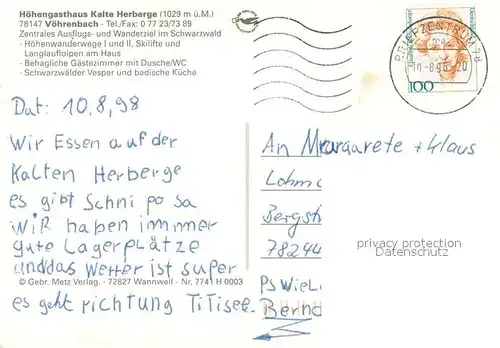 Höhengasthaus Kalte Herberge (1029 m ü.M.)
78147 Vöhrenbach - Tel./Fax: 0 77 23/73 89
Zentrales Ausflugs- und Wanderziel im Schwarzwald
- Höhenwanderwege I und II, Skilifte und
Langlaufloipen am Haus
- Behagliche Gästezimmer mit Dusche/WC
- Schwarzwälder Vesper und badische Küche
BRIEFZENTRUM 78
-8.98-20
100
Dat: 10.8,98
Wir Essen auf der
Kalten Herberge
es gibt Schni po sa
Wir haben immmer
gute Lagerplätze
und das Wetter ist super
© Gebr. Metz Verlag. - 72827 Wannweil - Nr. 7741 H 0003
es geht richtung Titisee.
An Mrargarete + Klaus
Lohm
Bergstr
78244
privacy protection
Datenschutz
PS Wiel
Bernd